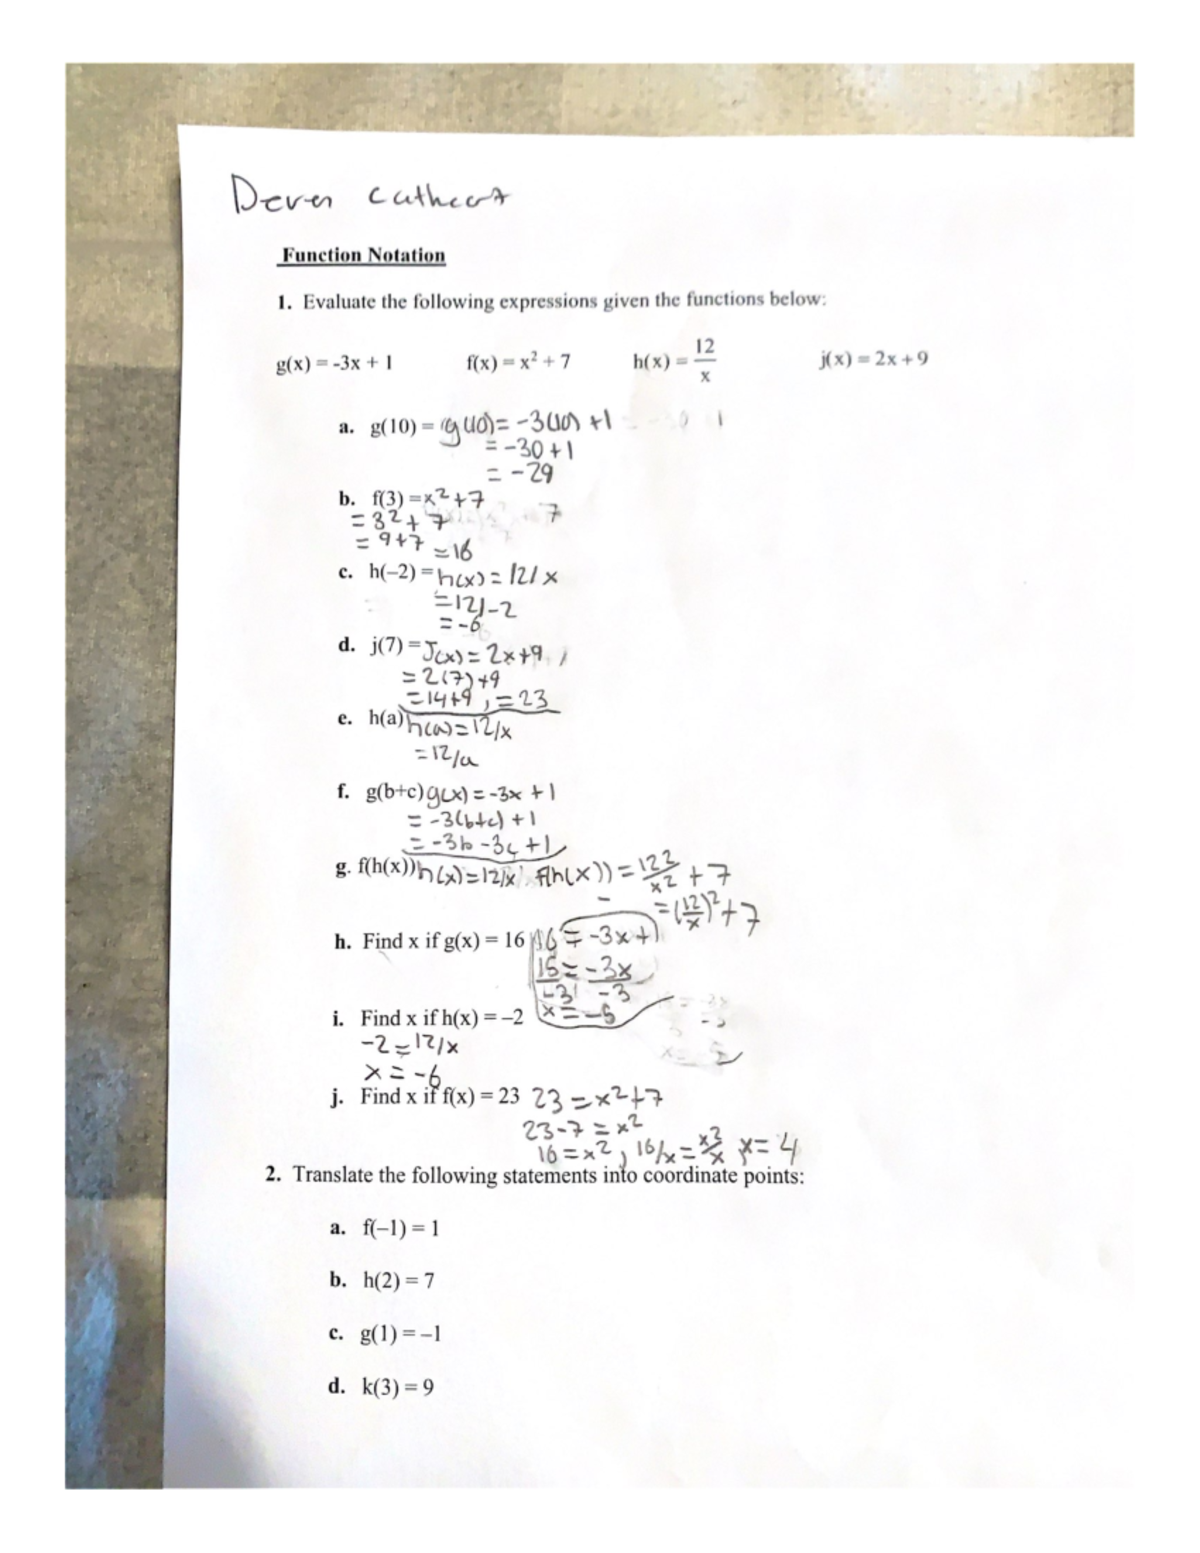 Deven Cathcart
Function Notation
1. Evaluate the following expressions given the functions below:
g(x) = -3x + 1 f(x) = x² + 7 h(x) = 12/x j(x) = 2x + 9
a. g(10) = g(10) = -3(10) + 1
= -30 + 1
= -29
b. f(3) = x² + 7
= 3² + 7
= 9 + 7 = 16
c. h(–2) = h(x) = 12/x
= 12/-2
= -6
d. j(7) = J(x) = 2x+9
= 2(7)+9
= 14+9, = 23
e. h(a) h(a) = 12/x
= 12/a
f. g(b+c) g(x) = -3x + 1
= -3(b+c) + 1
= -3b - 3c + 1
g. f(h(x)) h(x) = 12/x f(h(x)) = 12²/x² + 7
= (12/x)² + 7
h. Find x if g(x) = 16 16 = -3x + 1
15 = -3x
-3 -3
x = -5
i. Find x if h(x) = –2
-2 = 12/x
x = -6
j. Find x if f(x) = 23 23 = x² + 7
23 - 7 = x²
16 = x², 16/x = x²/x x = 4
2. Translate the following statements into coordinate points:
a. f(–1) = 1
b. h(2) = 7
c. g(1) = –1
d. k(3) = 9